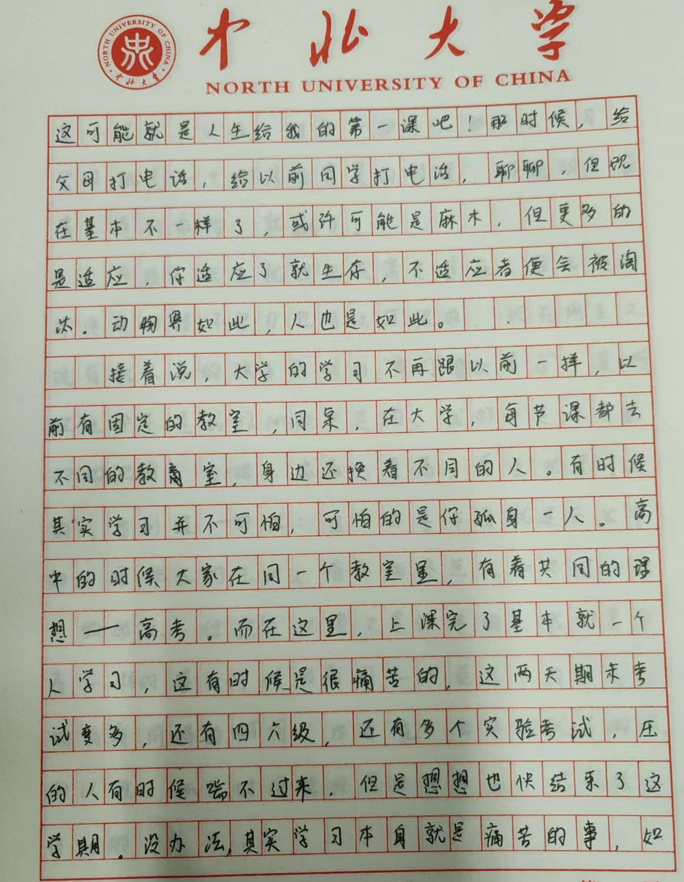 中北大学
NORTH UNIVERSITY OF CHINA
NORTH UNIVERSITY OF CHINA
中北大学
这可能就是人生给我的第一课吧!那时候,给
父母打电话,给以前同学打电话,聊聊,但现
在基本不一样了,或许可能是麻木,但更多的
是适应,你适应了就生存,不适应者便会被淘
汰.动物界如此,人也是如此。
接着说,大学的学习不再跟以前一样,以
前有固定的教室,同桌,在大学,每节课都去
不同的教室,身边还换着不同的人。有时候
其实学习并不可怕,可怕的是你孤身一人。高
中的时候大家在同一个教室里,有着共同的理
想——高考。而在这里,上课完了基本就一个
人学习,这有时候是很痛苦的,这两天期末考
试变多,还有四六级,还有多个实验考试,压
的人有时候喘不过来,但是想想也快结束了这
学期,没办法,其实学习本身就是痛苦的事,如